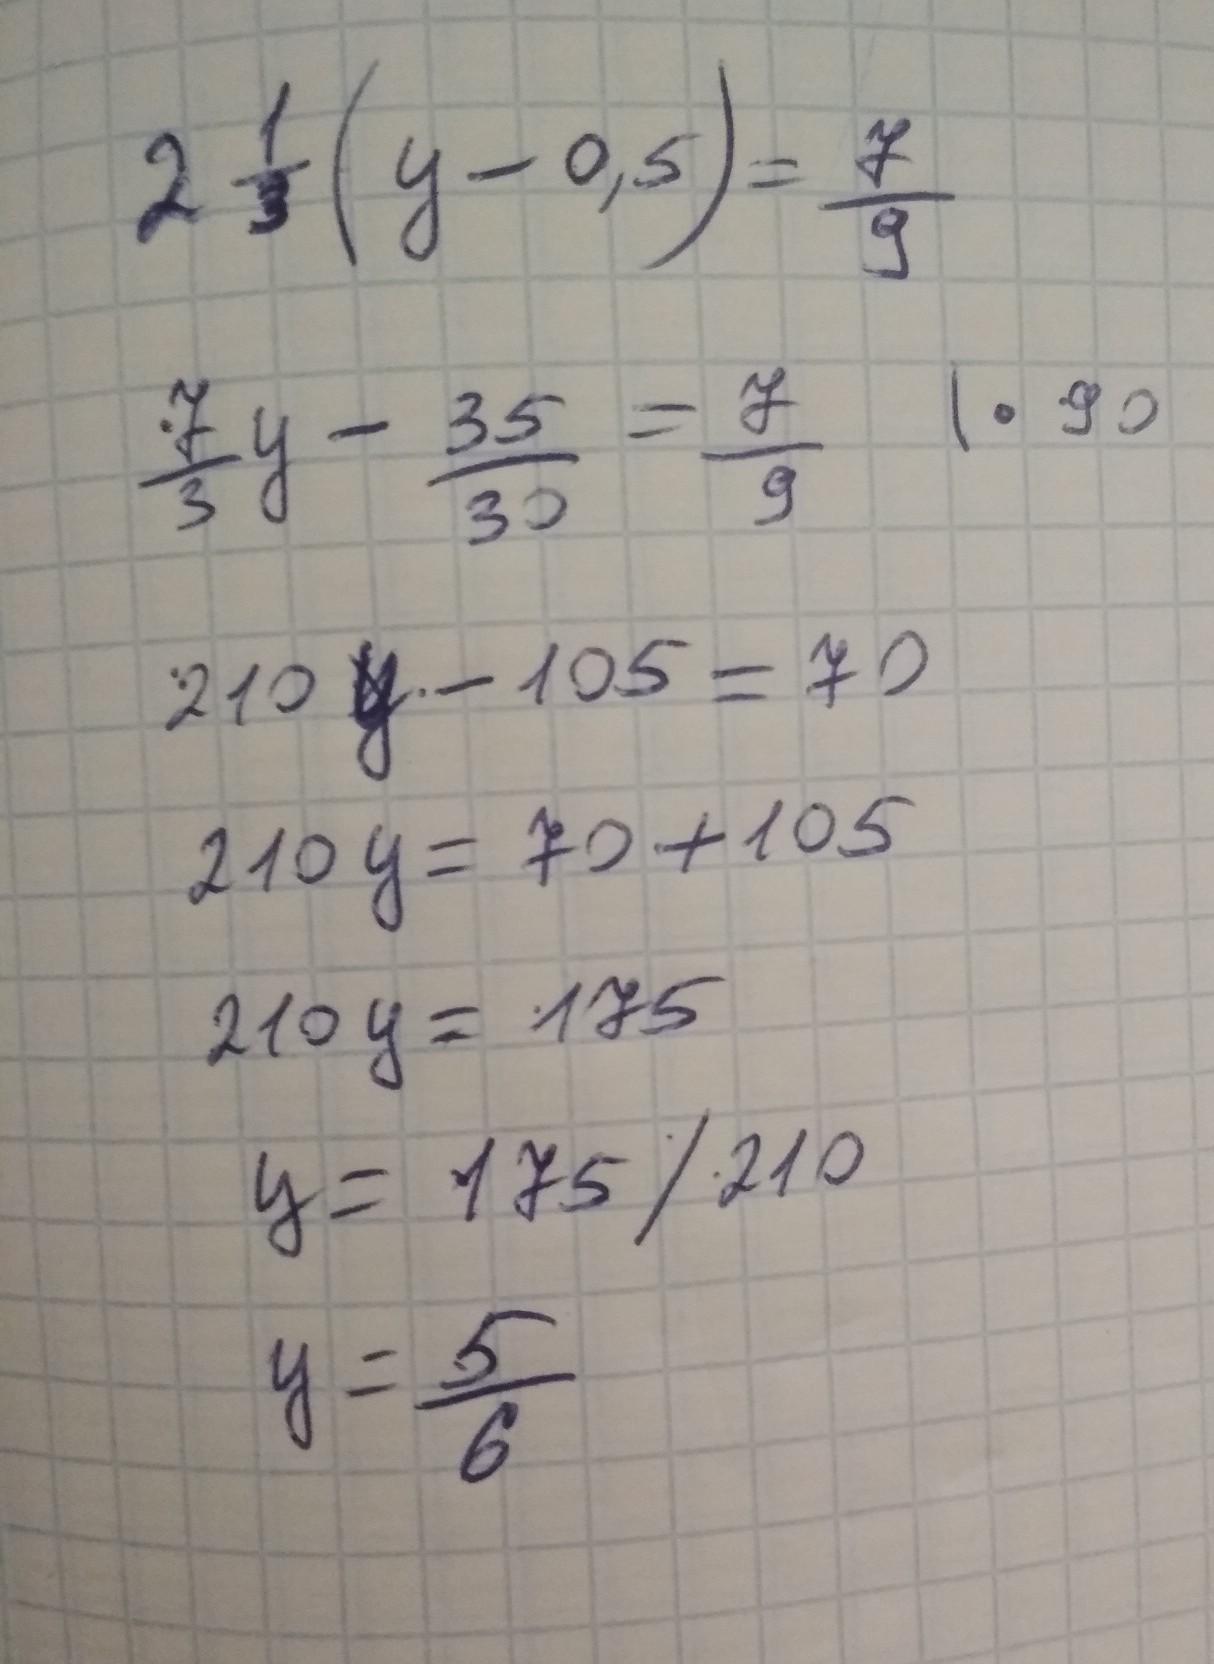 2 1/3 (y - 0,5) = 7/9
7/3 y - 35/30 = 7/9 | · 90
210 y - 105 = 70
210 y = 70 + 105
210 y = 175
y = 175 / 210
y = 5/6